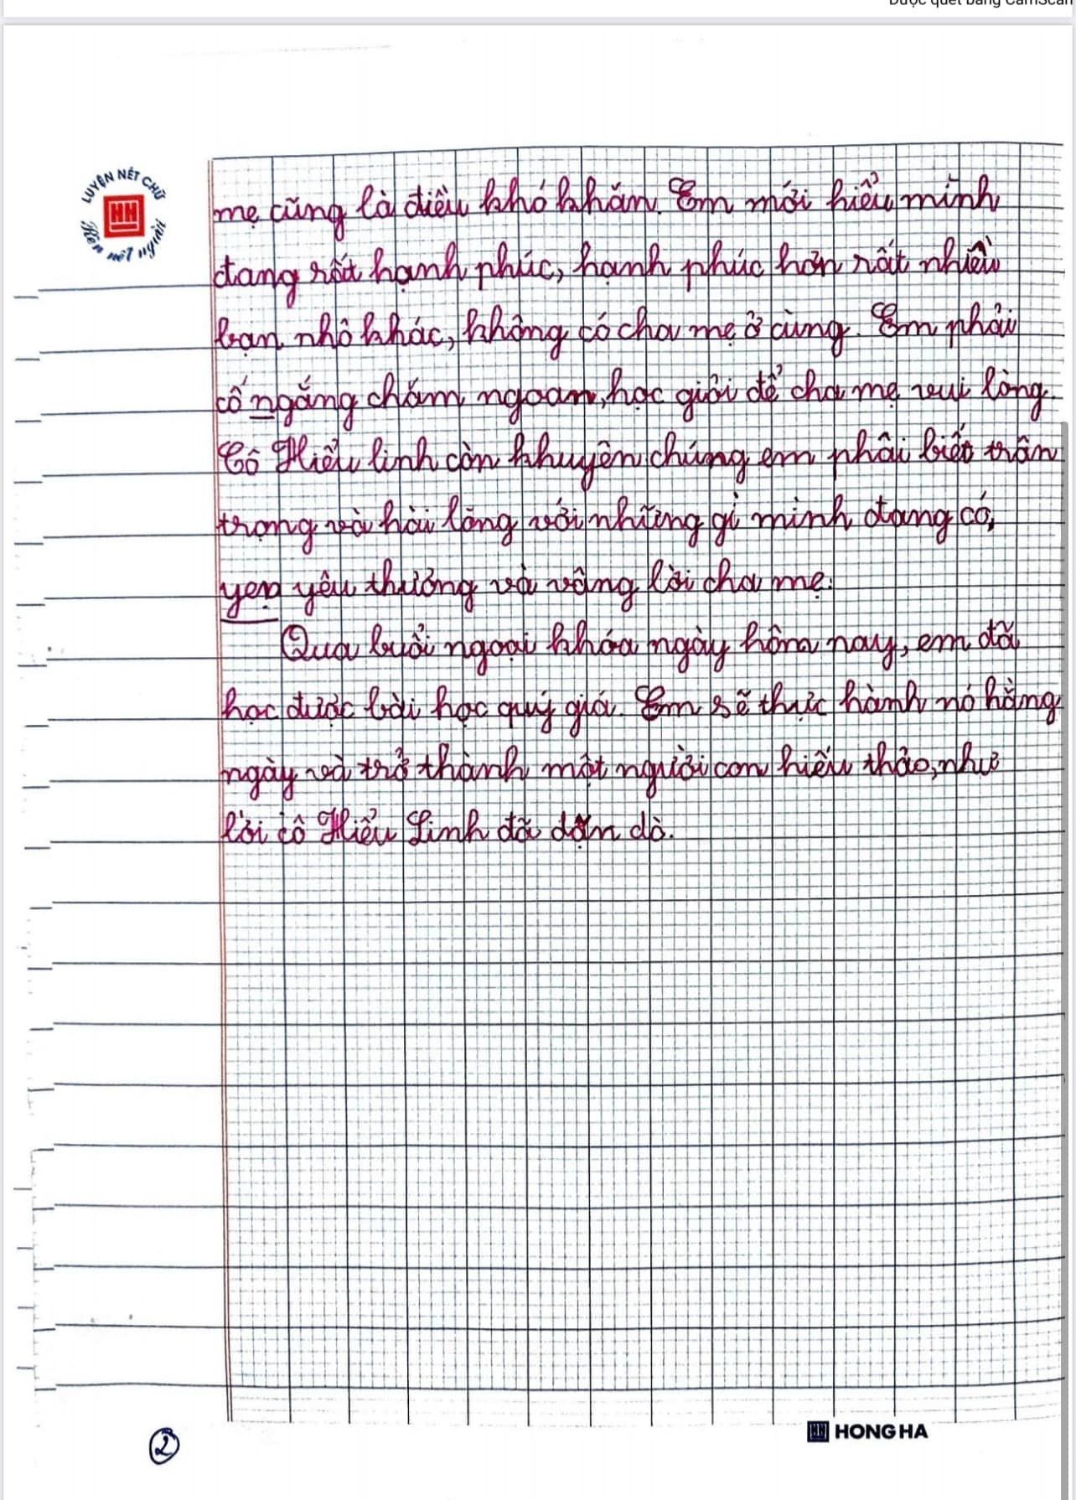 Được quét bằng CamScan
LUYỆN NÉT CHỮ
HH
Rèn nết người
mẹ cũng là điều khó khăn. Em mới hiểu mình
đang rất hạnh phúc, hạnh phúc hơn rất nhiều
bạn nhỏ khác, không có cha mẹ ở cùng. Em phải
cố ngắng chăm ngoan, học giỏi để cha mẹ vui lòng.
Cô Hiểu linh còn khuyên chúng em phải biết trân
trọng và hài lòng với những gì mình đang có,
yen yêu thương và vâng lời cha mẹ.
Qua buổi ngoại khóa ngày hôm nay, em đã
học được bài học quý giá. Em sẽ thực hành nó hằng
ngày và trở thành một người con hiếu thảo, như
lời cô Hiểu Linh đã dặn dò.
2
HH HONG HA